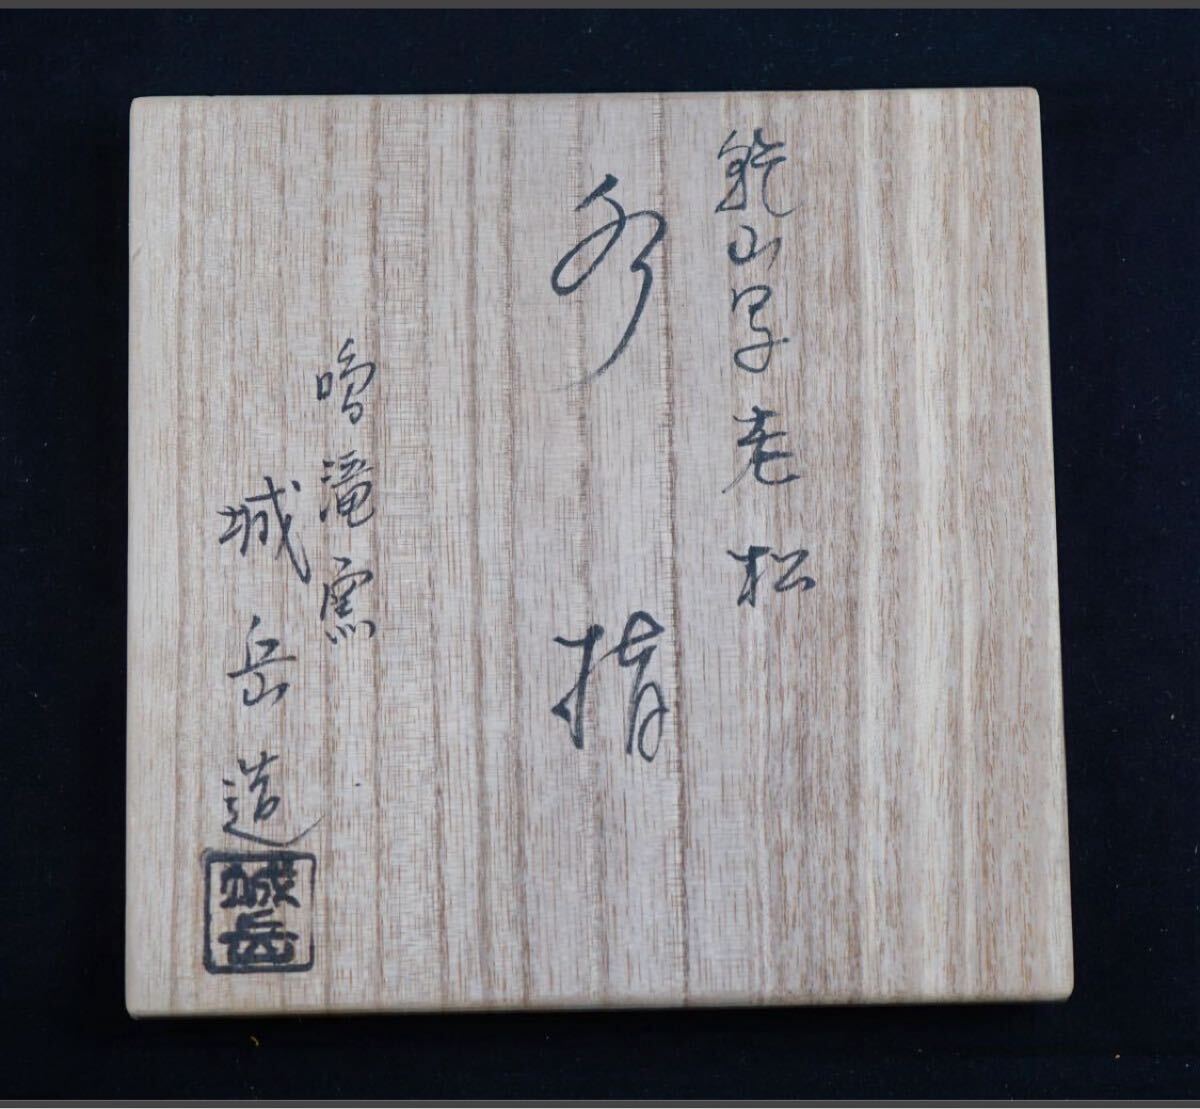 乾山写老松
水指
鳴滝窯
城岳造
城岳